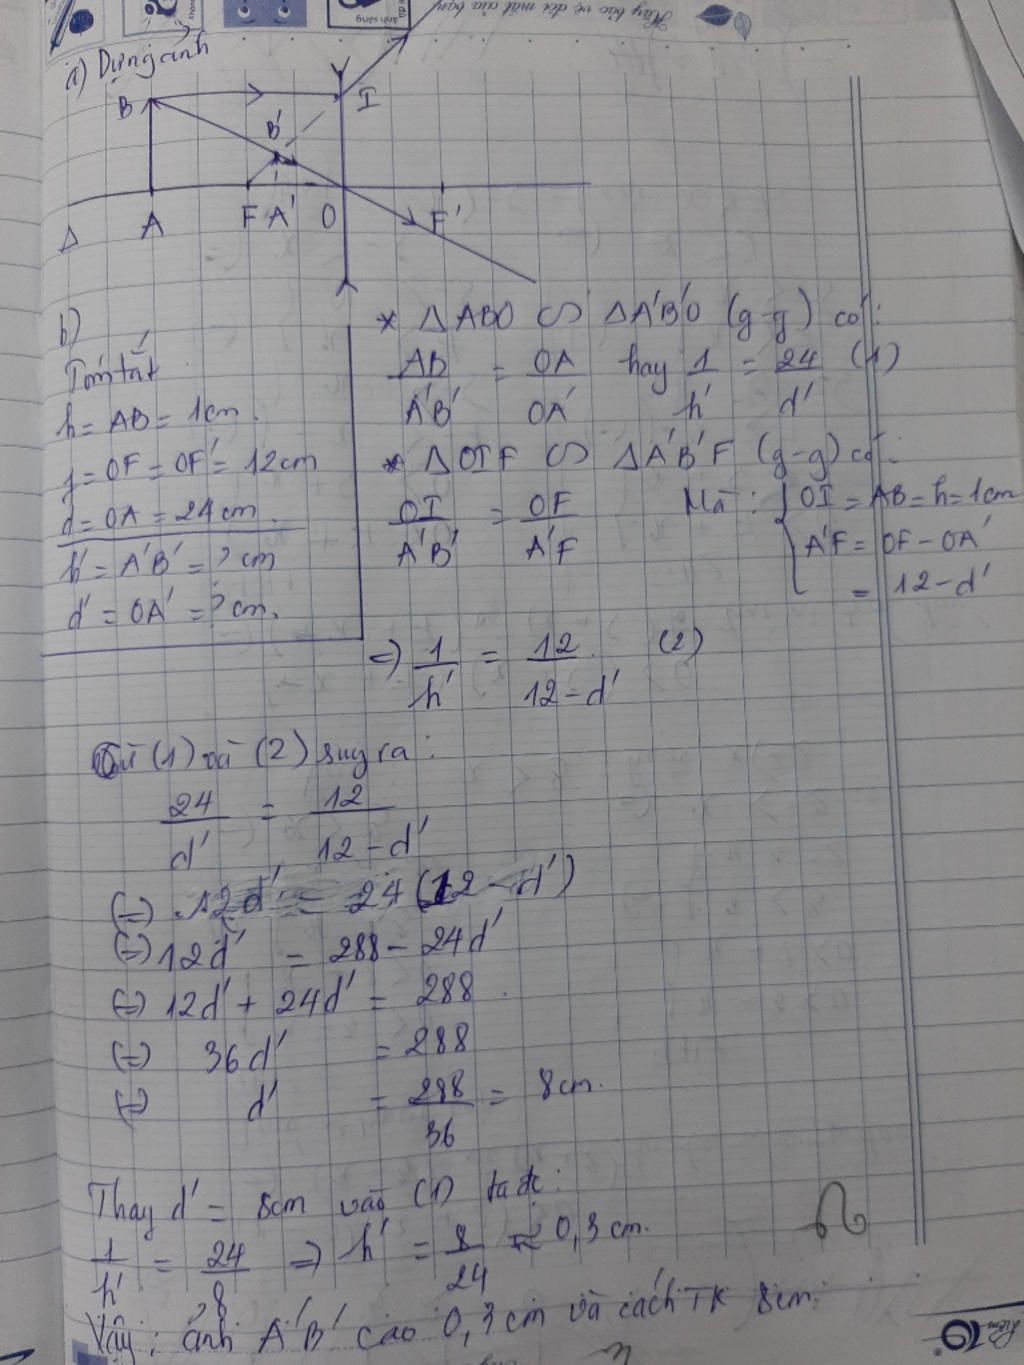 Hãy bảo vệ đôi mắt của bạn
ánh sáng
a) Dựng ảnh
B
I
B'
Δ
A
F A'
O
F'
b)
Tóm tắt
h = AB = 1cm.
f = OF = OF' = 12cm
d = OA = 24cm.
h' = A'B' = ? cm
d' = OA' = ? cm.
* ΔABO ∽ ΔA'B'O (g-g) có:
AB/A'B' = OA/OA' hay 1/h' = 24/d' (1)
* ΔOIF ∽ ΔA'B'F (g-g) có:
OI/A'B' = OF/A'F Mà: { OI = AB = h = 1cm
A'F = OF - OA'
= 12 - d'
=> 1/h' = 12/12-d' (2)
Từ (1) và (2) suy ra:
24/d' = 12/12-d'
(=) 12d' = 24(12 - d')
(=) 12d' = 288 - 24d'
(=) 12d' + 24d' = 288.
(=) 36d' = 288
(=) d' = 288/36 = 8cm.
Thay d' = 8cm vào (1) ta đc:
1/h' = 24/8 => h' = 8/24 ≈ 0,3cm.
Vậy: ảnh A'B' cao 0,3cm và cách TK 8cm.